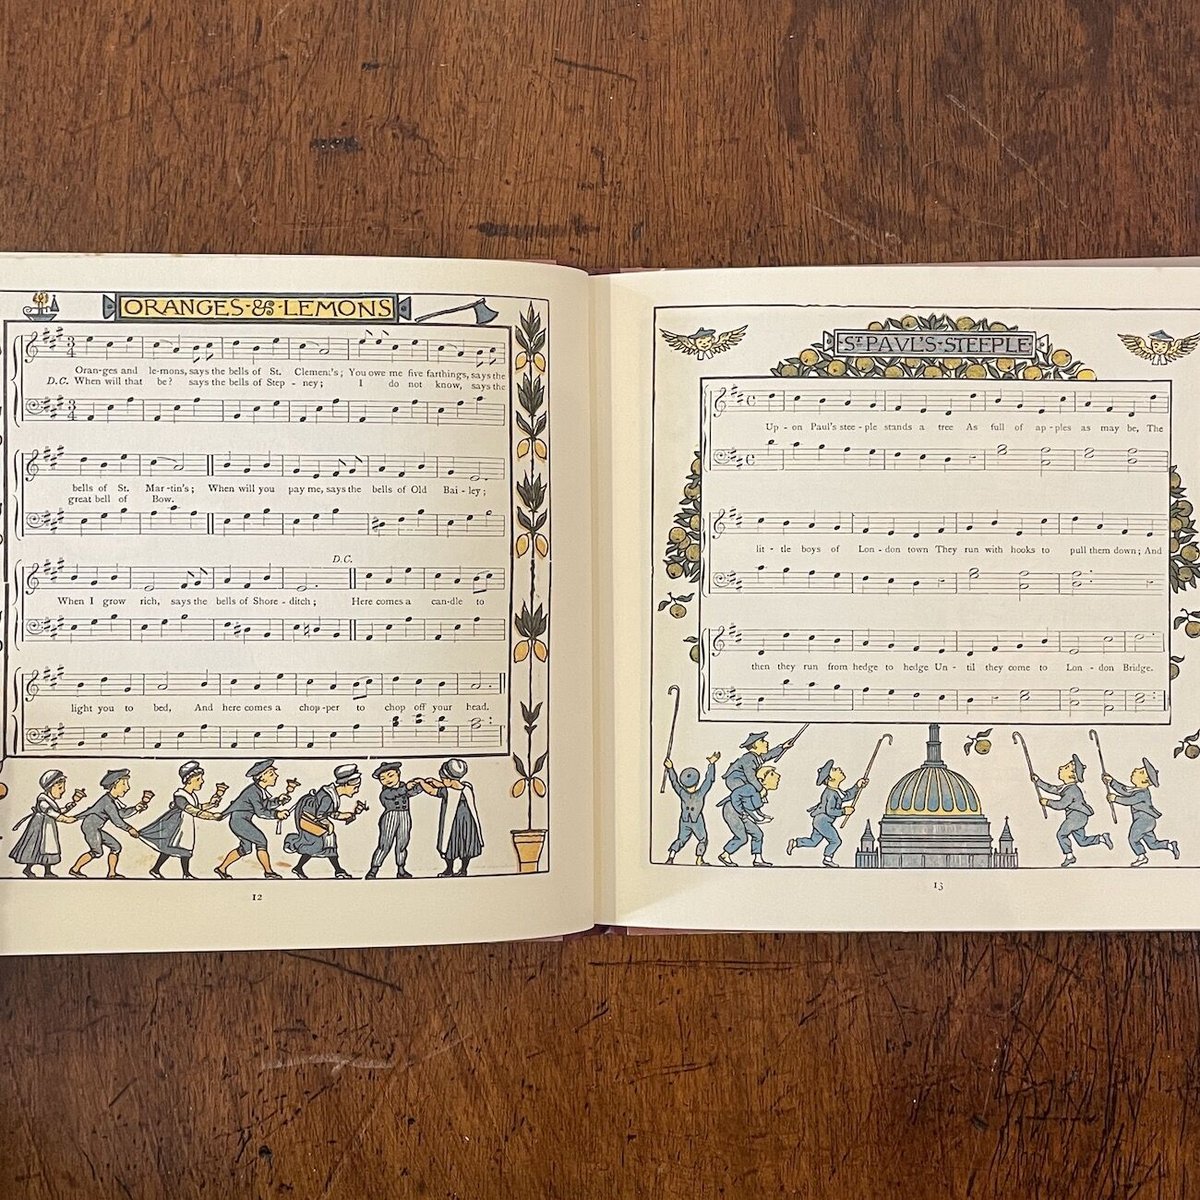 ORANGES-&-LEMONS
Oran-ges and le-mons, says the bells of St. Clemen:'s; You owe me five farthings, says the
D.C. When will that be? says the bells of Step - ney; I do not know, says the
bells of St. Mar-tin's; When will you pay me, says the bells of Old Bai - ley;
great bell of Bow.
D.C.
When I grow rich, says the bells of Shore - ditch; Here comes a can-dle to
light you to bed, And here comes a chop-per to chop off your head.
12
ST PAUL'S-STEEPLE
Up - on Paul's stee - ple stands a tree As full of ap - ples as may be, The
lit - tle boys of Lon - don town They run with hooks to pull them down; And
then they run from hedge to hedge Un - til they come to Lon - don Bridge.
13